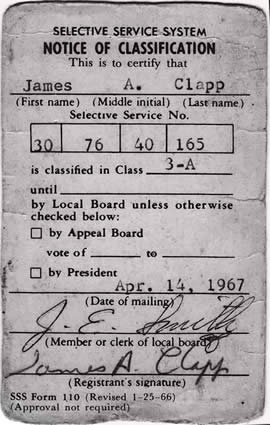 SELECTIVE SERVICE SYSTEM
NOTICE OF CLASSIFICATION
This is to certify that
James A. Clapp
(First name) (Middle initial) (Last name)
Selective Service No.
30 76 40 165
is classified in Class 3-A
until
by Local Board unless otherwise
checked below:
☐ by Appeal Board
vote of to
☐ by President
Apr. 14, 1967
(Date of mailing)
J. E. Smith
(Member or clerk of local board)
James A. Clapp
(Registrant's signature)
SSS Form 110 (Revised 1-25-66)
(Approval not required)